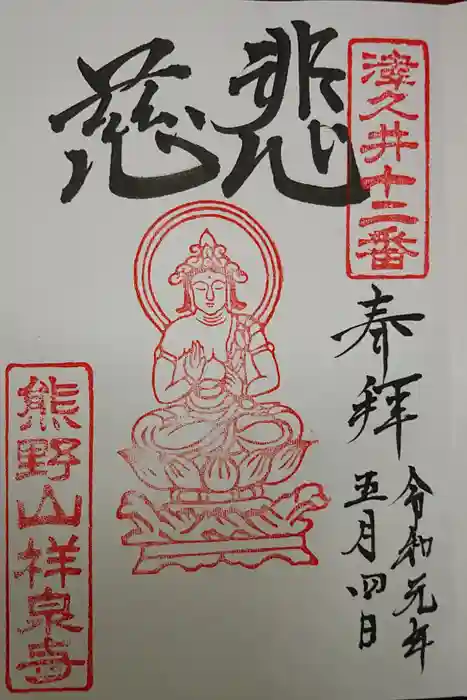 津久井十二番
奉拝
令和元年
五月四日
慈悲
熊野山祥泉寺